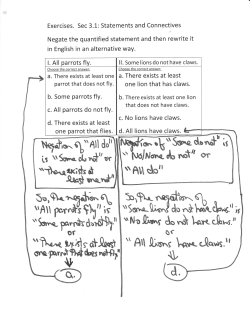 Exercises. Sec 3.1: Statements and Connectives
Negate the quantified statement and then rewrite it
in English in an alternative way.
I. All parrots fly.
Choose the correct answer.
a. There exists at least one
parrot that does not fly.
b. Some parrots fly.
c. All parrots do not fly.
d. There exists at least
one parrot that flies.
II. Some lions do not have claws.
Choose the correct answer.
a. There exists at least
one lion that has claws.
b. There exists at least one lion
that does not have claws.
c. No lions have claws.
d. All lions have claws.
Negation of "All do"
is "Some do not" or
"There exists at
least one not"
So, the negation of
"All parrots fly" is
"Some parrots do not fly"
or
"There exists at least
one parrot that does not fly"
a.
Negation of "Some do not" is
"No/None do not" or
"All do"
So, the negation of
"Some lions do not have claws" is
"No lions do not have claws."
or
"All lions have claws."
d.